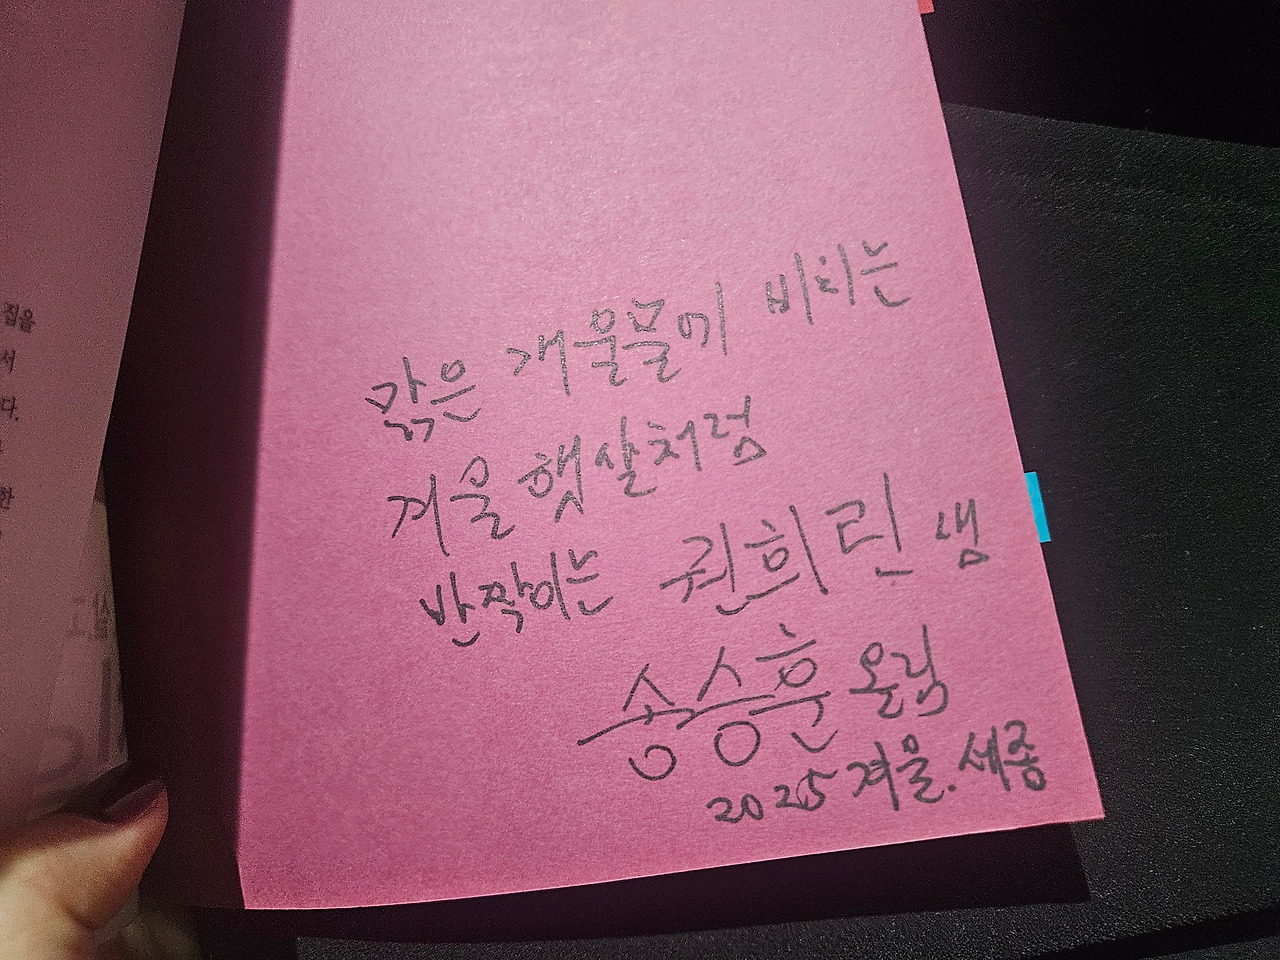 집을
서
다.
한
맑은 개울물에 비치는
겨울 햇살처럼
반짝이는 권희린 샘
송승훈 올림
2025 겨울. 세종